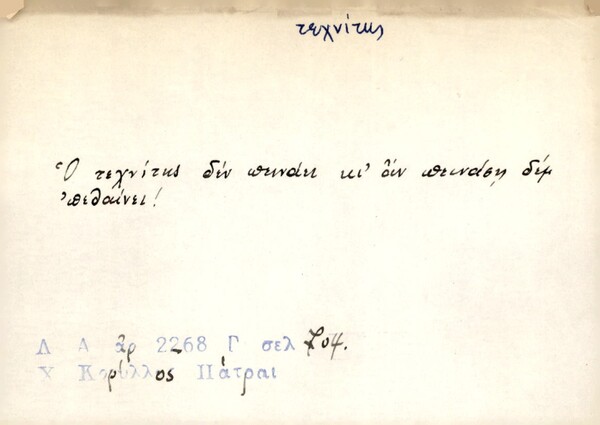 τεχνίτης
Ὁ τεχνίτης δέν πεινάει κι' ἄν πεινάσῃ δέμ
'πεθαίνει!
Λ Α ἀρ 2268 Γ σελ
Χ Κορύλλος Πάτραι